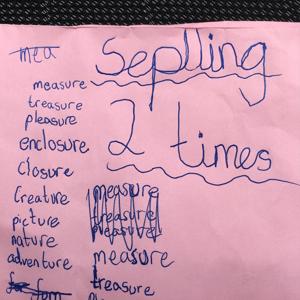 Seplling
2 times
mea
measure
treasure
pleasure
enclosure
closure
Creature
picture
nature
adventure
measure
treasure
measure
treasure